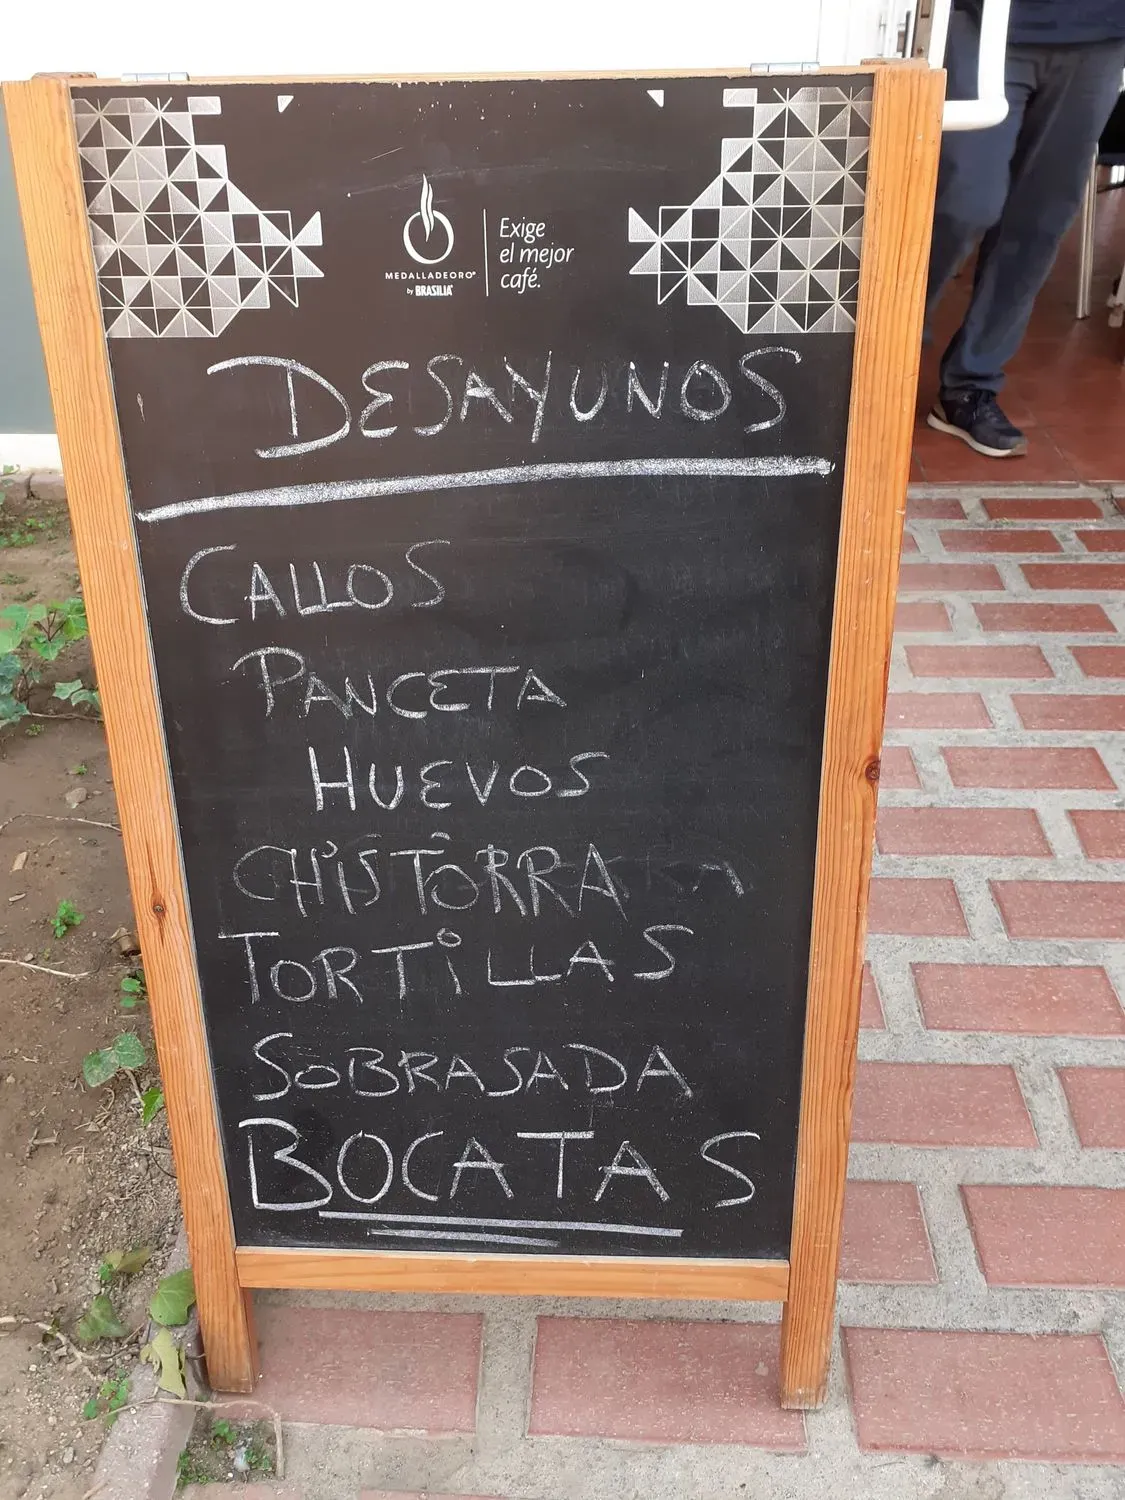 MEDALLADEORO®
by BRASILIA®
Exige
el mejor
café.
DESAYUNOS
CALLOS
PANCETA
HUEVOS
CHISTORRA
TORTiLLAS
SOBRASADA
BOCATAS